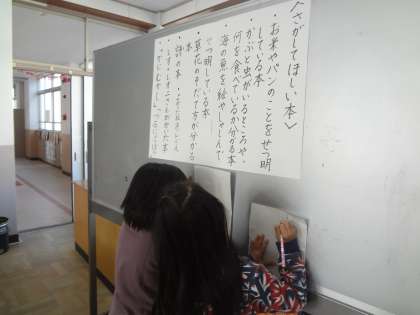 <さがしてほしい本>
・お米やパンのことをせつ明
している本
・かぶと虫がいるところや、
何を食べているか分かる本
・海の魚を絵やしゃしんで
せつ明している本
・草花のそだて方が分かる
本
・詩の本